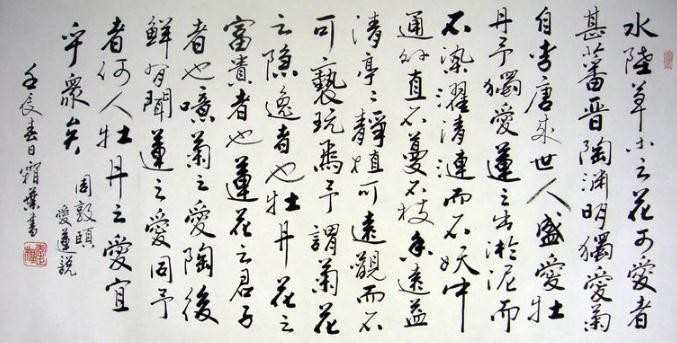 水陸草木之花可愛者
甚蕃晉陶淵明獨愛菊
自李唐來世人盛愛牡
丹予獨愛蓮之出淤泥而
不染濯清漣而不妖中
通外直不蔓不枝香遠益
清亭々靜植可遠觀而不
可褻玩焉予謂菊花
之隱逸者也牡丹花之
富貴者也蓮花之君子
者也噫菊之愛陶後
鮮有聞蓮之愛同予
者何人牡丹之愛宜
乎眾矣
周敦頤
愛蓮説
壬辰春日霜葉書